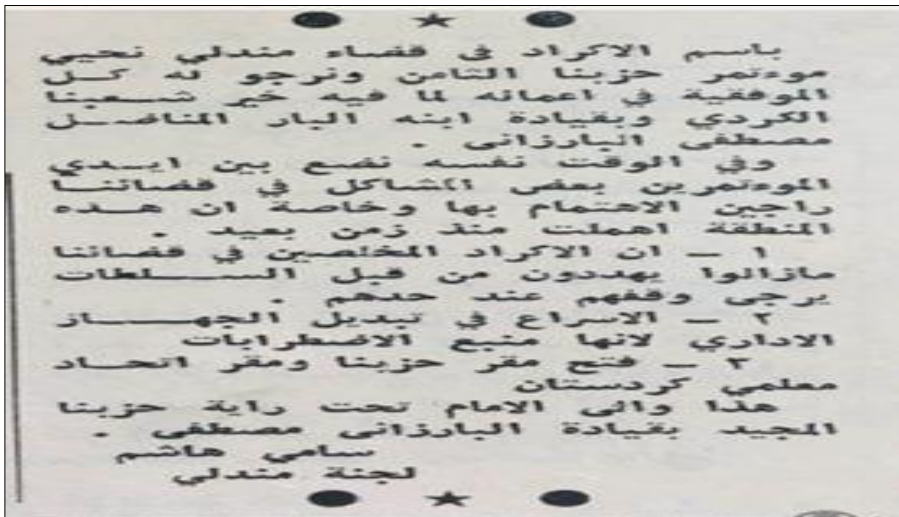 باسم الاكراد في قضاء مندلي نحيي
موءتمر حزبنا الثامن ونرجو له كل
الموفقية في اعماله لما فيه خير شعبنا
الكردي وبقيادة ابنه البار المناضل
مصطفى البارزانى .
وفي الوقت نفسه نضع بين ايدي
الموءتمرين بعض المشاكل في قضائنا
راجين الاهتمام بها وخاصة ان هذه
المنطقة اهملت منذ زمن بعيد .
١ ـ ان الاكراد المخلصين في قضائنا
مازالوا يهددون من قبل السلطات
يرجى وقفهم عند حدهم .
٢ ـ الاسراع في تبديل الجهاز
الاداري لانها منبع الاضطرابات
٣ ـ فتح مقر حزبنا ومقر اتحاد
معلمي كردستان
هذا والى الامام تحت راية حزبنا
المجيد بقيادة البارزانى مصطفى .
سامي هاشم
لجنة مندلي